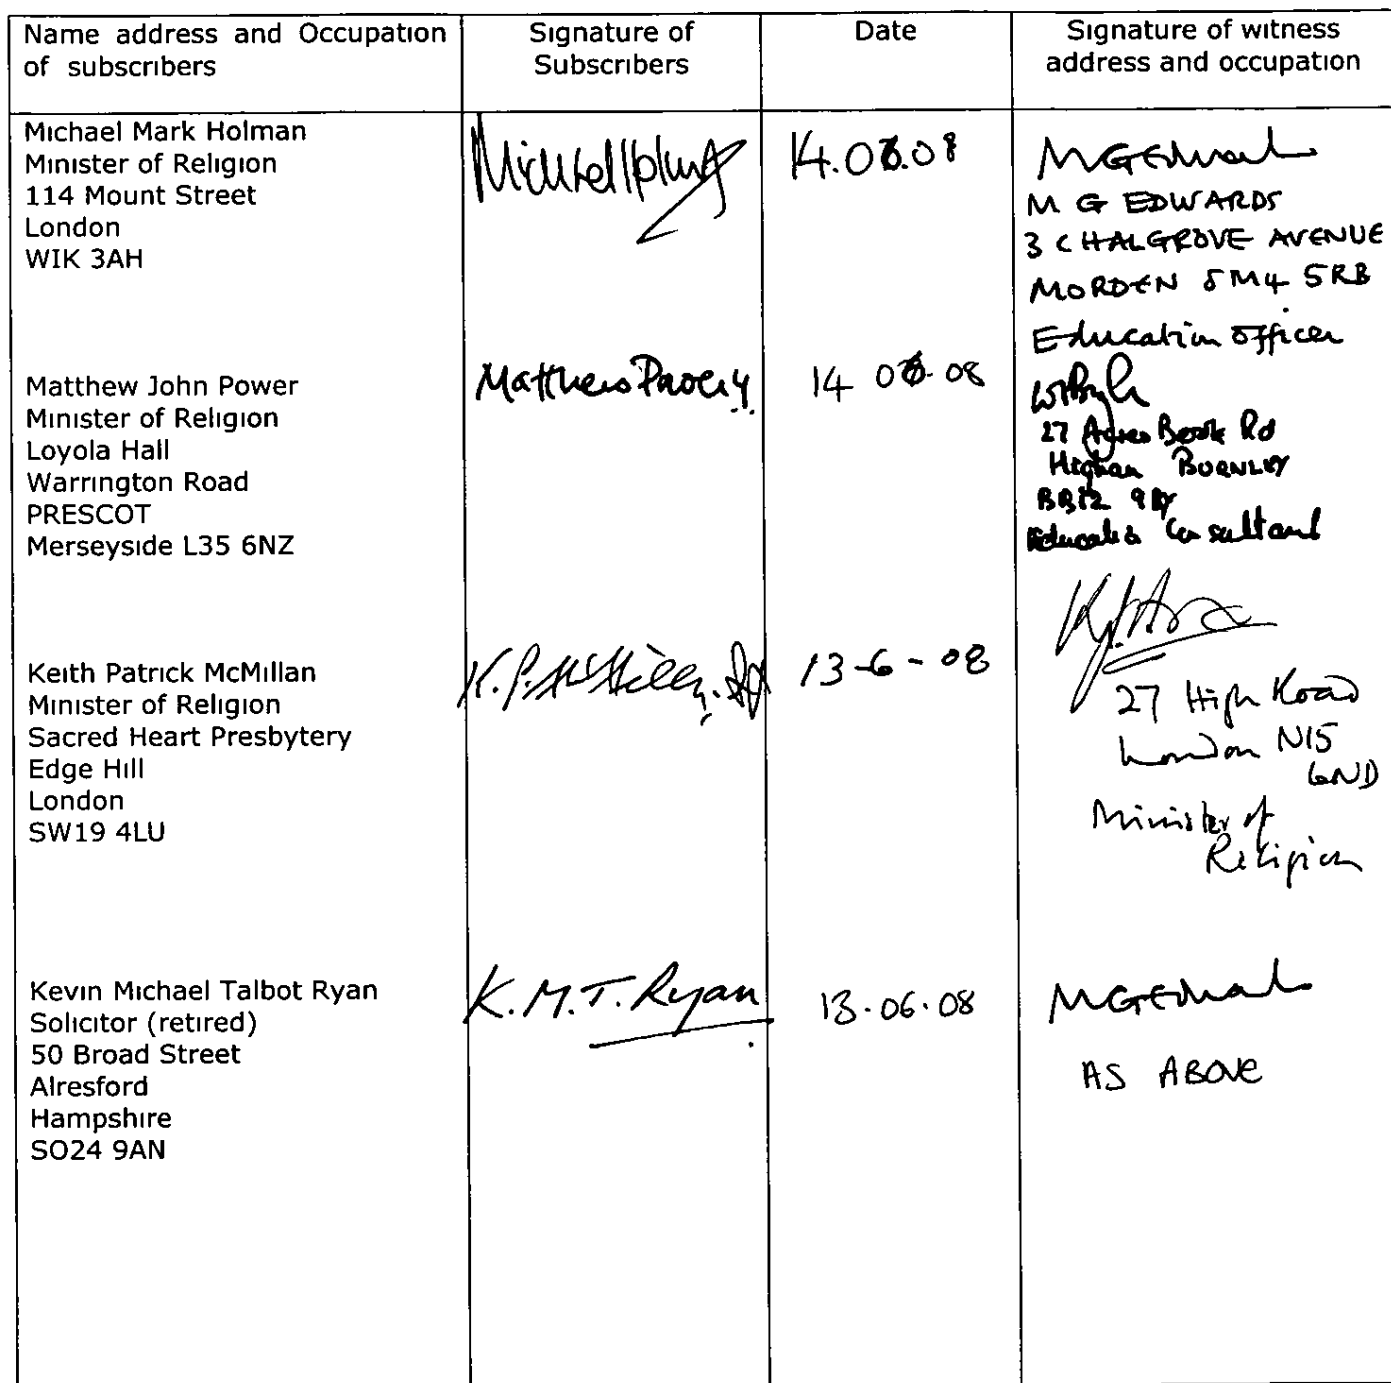 Name address and Occupation
of subscribers
Signature of
Subscribers
Date
Signature of witness
address and occupation
Michael Mark Holman
Minister of Religion
114 Mount Street
London
WIK 3AH
14.06.08
M G EDWARDS
3 CHALGROVE AVENUE
MORDEN SM4 5RB
Education Officer
Matthew John Power
Minister of Religion
Loyola Hall
Warrington Road
PRESCOT
Merseyside L35 6NZ
Matthew Power sj
14 06.08
27 Acres Brook Rd
Higham BURNLEY
BB12 9BY
Education Consultant
Keith Patrick McMillan
Minister of Religion
Sacred Heart Presbytery
Edge Hill
London
SW19 4LU
K. P. McMillan. SJ
13-6-08
27 High Road
London N15
6ND
Minister of
Religion
Kevin Michael Talbot Ryan
Solicitor (retired)
50 Broad Street
Alresford
Hampshire
SO24 9AN
K.M.T. Ryan
13.06.08
AS ABOVE